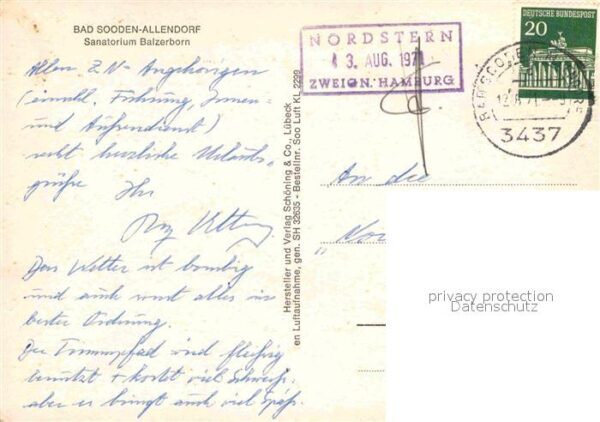 BAD SOODEN-ALLENDORF
Sanatorium Balzerborn
Allen Z.N. Angehörigen
(einschl. Führung, Innen-
und Außendienst)
recht herzliche Urlaubs-
grüße Ihr
Das Wetter ist bombig
und auch sonst alles in
bester Ordnung.
Der Trimmpfad wird fleißig
benutzt + kostet viel Schweiß,
aber es bringt auch viel Spaß.
Hersteller und Verlag Schöning & Co., Lübeck
en Luftaufnahme, gen. SH 32635 - Bestellnr. Soo Luft KL 2299
NORDSTERN
13. AUG. 1971
ZWEIGN. HAMBURG
DEUTSCHE BUNDESPOST
20
BAD SOODEN-
3437
An die
privacy protection
Datenschutz